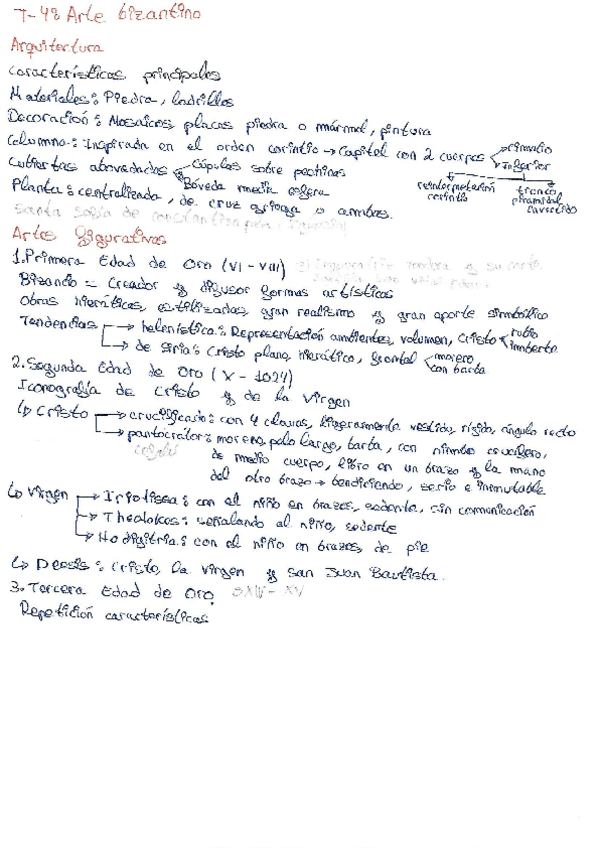 T-48 Arte bizantino
Arquitectura
Características principales
Materiales: Piedra, ladrillos
Decoración: Mosaicos, placas piedra o mármol, pintura
Columna: Inspirada en el orden corintio → Capitel con 2 cuerpos
cimacio
inferior
reinterpretación corintio
tronco piramidal invertido
Cubiertas abovedadas
Cúpulas sobre pechinas
Bóveda media esfera
Planta: centralizada, de cruz griega o ambas.
santa sofia de constantinopla
Artes figurativas
1. Primera Edad de Oro (VI - VIII)
y su corte
Bizancio = Creador y difusor formas artísticas
Obras hieráticas, estilizadas, gran realismo y gran aporte simbólico
Tendencias → helenística: Representación ambientes, volumen, Cristo
rubio
imberbe
→ de Siria: Cristo plano, hierático, frontal
moreno
con barba
2. Segunda Edad de Oro (X - 1024)
Iconografía de Cristo y de la Virgen
↳ Cristo → crucificado: con 4 clavos, ligeramente vestido, rígido, ángulo recto
→ pantocrátor: moreno, pelo largo, barba, con nimbo crucífero,
de medio cuerpo, libro en un brazo y la mano
del otro brazo → bendiciendo, serio e inmutable
↳ Virgen → Iriotissa: con el niño en brazos, sedente, sin comunicación
→ Theotokos: señalando al niño, sedente
→ Hodigitria: con el niño en brazos, de pie
↳ Deesis: Cristo, la virgen y san Juan Bautista.
3. Tercera Edad de Oro SXIV - XV
Repetición características